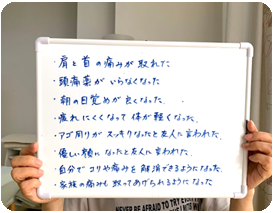 ・肩と首の痛みが取れた
・頭痛薬がいらなくなった
・朝の目覚めが良くなった。
・疲れにくくなって体が軽くなった。
・アゴ周りがスッキリなったと友人に言われた。
・優しい顔になったと友人に言われた。
・自分でコリや痛みを解消できるようになった。
・家族の痛みも取ってあげられるようになった
NEVER BE AFRAID TO TRY